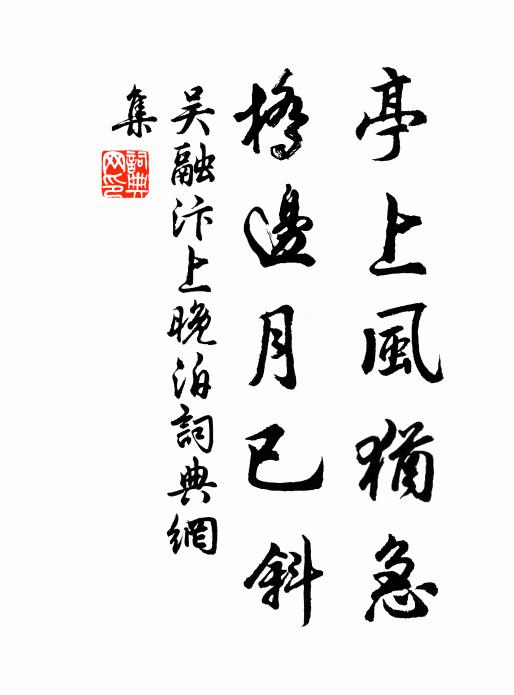 亭上風猶急
橋邊月已斜
吳融汴上晚泊詞典網
集
詞典網印